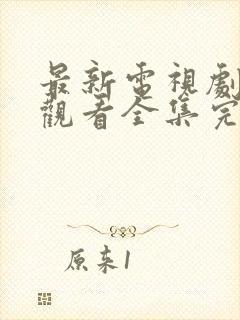 最新電視劇
觀看全集完
原来1